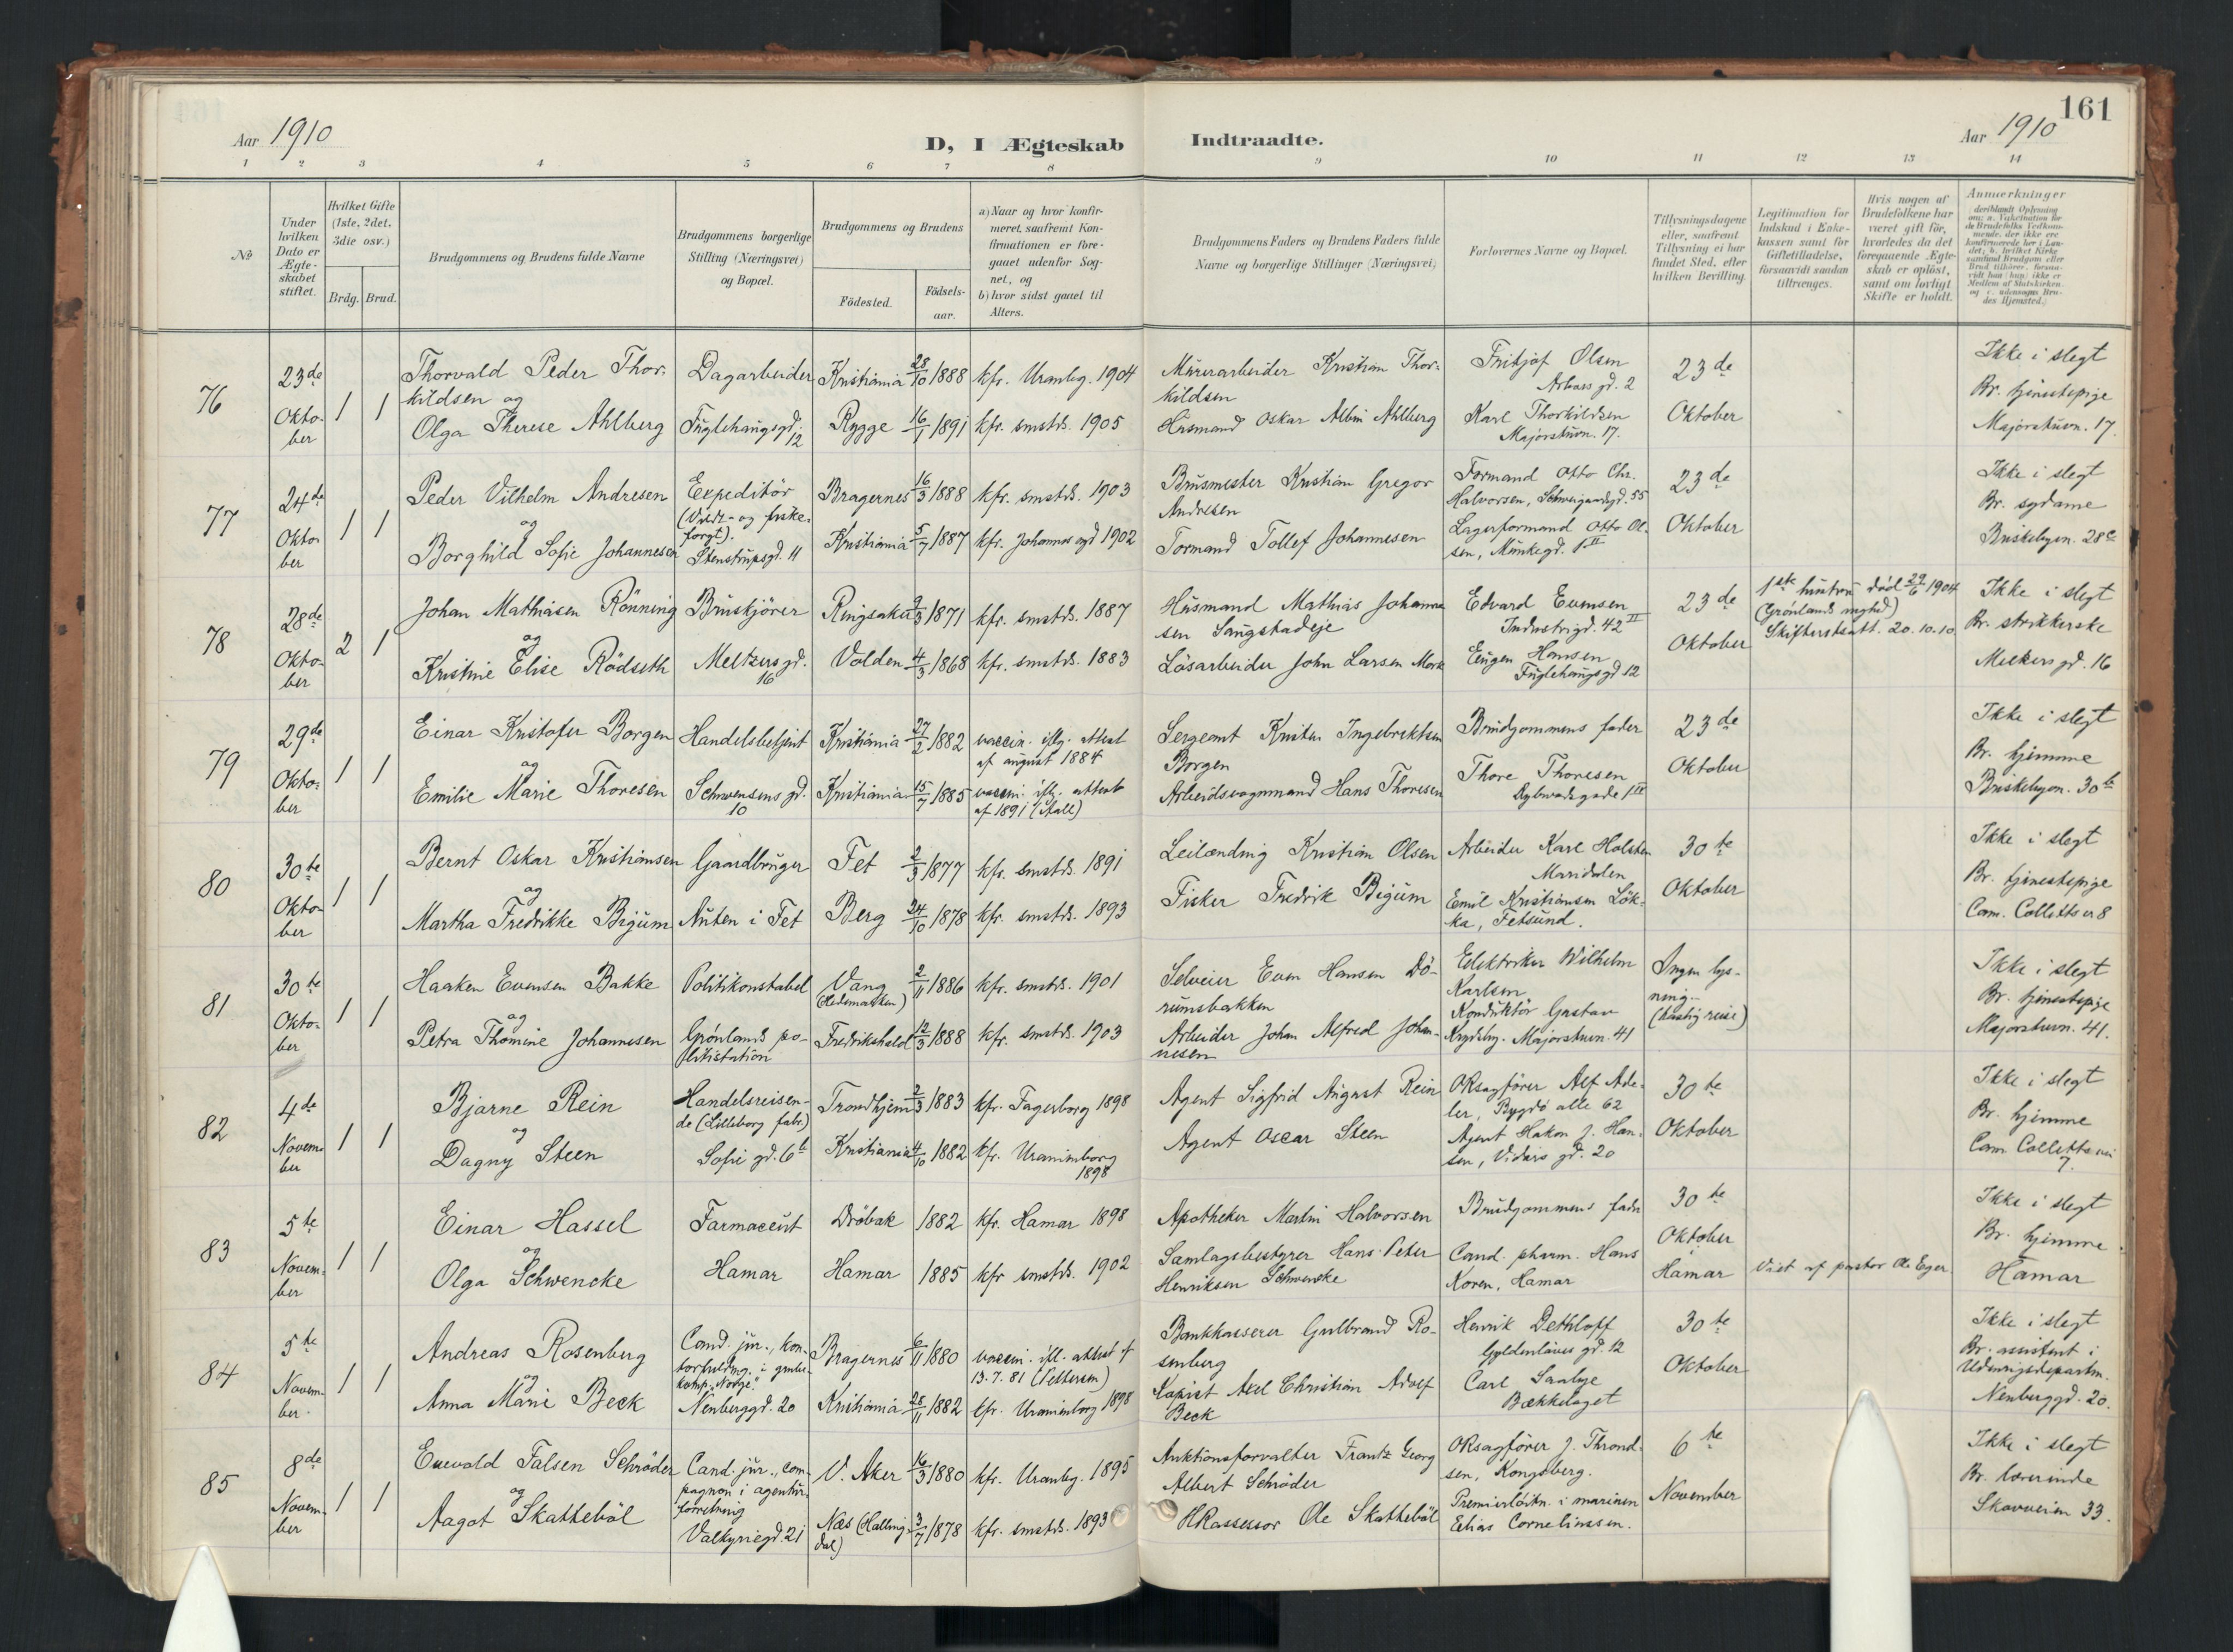 161
Aar 1910
D, I Ægteskab
Indtraadte.
Aar 1910
1 2 3 4 5 6 7 8 9 10 11 12 13 14
No
Under hvilken Dato er Ægte-skabet stiftet.
Hvilket Gifte (1ste, 2det, 3die osv.)
Brdg. Brud.
Brudgommens og Brudens fulde Navne
Brudgommens borgerlige Stilling (Næringsvei) og Bopæl.
Brudgommens og Brudens
Födested.
Födsels-aar.
a) Naar og hvor konfir-meret, saafremt Kon-firmationen er fore-gaaet udenfor Sog-net, og
b) hvor sidst gaaet til Alters.
Brudgommens Faders og Brudens Faders fulde Navne og borgerlige Stillinger (Næringsvei)
Forlovernes Navne og Bopæl.
Tillysningsdagene eller, saafremt Tillysning ei har fundet Sted, efter hvilken Bevilling.
Legitimation for Indskud i Enke-kassen samt for Giftetilladelse, forsaavidt saadan tiltrænges.
Hvis nogen af Brudefolkene har været gift för, hvorledes da det foregaaende Ægte-skab er oplöst, samt om lovligt Skifte er holdt.
Anmerkninger
76
23de Okto-ber
1 1
Thorvald Peder Thor-
kildsen og
Olga Therese Ahlberg
Dagarbeider
Fuglehaugsgd. 12
Kristiania 28/10 1888 kfr. Uranbg. 1904
Rygge 16/1 1891 kfr. smstds. 1905
Murerarbeider Kristian Thor-
kildsen
Husmand Oskar Albin Ahlberg
Fritjof Olsen
gd. 2
Karl Thorkildsen
Majorstuvn. 17.
23de
Oktober
Ikke i slegt
Br. tjenestepige
Majorstuvn. 17.
77
24de Okto-ber
1 1
Peder Vilhelm Andresen
og
Borghild Sofie Johannesen
Expeditör
(Vildt- og fiske-
forgt).
Stenstrupsgd. 11
Bragernes 16/3 1888 kfr. smstds. 1903
Kristiania 5/7 1887 kfr. Johannes mgd 1902
Brusmester Kristian Gregor
Andresen
Formand Tollef Johannesen
Formand Otto Chr.
Halvorsen, Schweigaardsgd. 55
Lagerformand Otto Ol-
sen, Munkegd. 1 II
23de
Oktober
Ikke i slegt
Br. sydame
Briskebyvn. 28c
78
28de Okto-ber
2 1
Johan Mathiasen Rönning
og
Kristine Elise Rödseth
Bruskjörer
Meltzersgd.
16
Ringsaker 9/3 1871 kfr. smstds. 1887
Volden 4/3 1868 kfr. smstds. 1883
Husmand Mathias Johanne
sen Saugstadeje
Lösarbeider John Larsen Mork
Edvard Evensen
Industrigd. 42 II
Eugen Hansen
Fuglehaugsgd 12
23de
Oktober
1ste hustru död 29/6 1904
(Grönlands mghed)
Skifteretsatt. 20.10.10.
Ikke i slegt
Br. strikkerske
Meltzersgd. 16
79
29de Okto-ber
1 1
Einar Kristofer Borgen
og
Emilie Marie Thoresen
Handelsbetjent
Schwensens gd.
10
Kristiania 27/2 1882 vaccin. iflg. attest
af august 1884
Kristiania 15/7 1885 vaccin. iflg. attest
af 1891 (Aall)
Sergeant Kristen Ingebrektsen
Borgen
Arbeidsvognmand Hans Thoresen
Brudgommens fader
Thore Thoresen
23de
Oktober
Ikke i slegt
Br. hjemme
Briskebyvn. 30b
80
30te Okto-ber
1 1
Bernt Oskar Kristiansen
og
Martha Fredrikke Bigum
Gaardbruger
Auten i Fet
Fet 2/3 1877 kfr. smstds. 1891
Berg 24/10 1878 kfr. smstds. 1893
Leilænding Kristian Olsen
Fisker Fredrik Bigum
Arbeider Karl Holsten
Maridalen
Emil Kristiansen Lök-
ka, Fetsund.
30te
Oktober
Ikke i slegt
Br. tjenestepige
Cam. Collettsv 8
81
30te Okto-ber
1 1
Haaken Evensen Bakke
og
Petra Thomine Johannesen
Politikonstabel
Grönlands po-
litistation
Vang
(Hedemarken) 2/11 1886 kfr. smstds. 1901
Fredrikshald 12/3 1888 kfr. smstds. 1903
Selveier Even Hansen Dö-
rumsbakken
Arbeider Johan Alfred Johan-
nesen
Elektriker Wilhelm
Karlsen
Konduktör Gustav
Majorstuvn. 41
Ingen lys-
ning.
(hastig reise)
Ikke i slegt
Br. tjenestepige
Majorstuvn. 41.
82
4de Novem-ber
1 1
Bjarne Rein
og
Dagny Steen
Handelsreisen-
de (Lilleborg fabr.)
Sofie gd. 6b
Trondhjem 2/3 1883 kfr. Fagerborg 1898
Kristiania 4/10 1882 kfr. Uranienborg
1898
Agent Sigfrid August Rein
Agent Oscar Steen
ORsagförer Alf Ade-
ler, Bygdö alle 62
Agent Hakon J. Han-
sen, Vidars gd. 20
30te
Oktober
Ikke i slegt
Br. hjemme
Cam Colletts vei
7.
83
5te Novem-ber
1 1
Einar Hassel
og
Olga Schwencke
Farmaceut
Hamar
Dröbak 1882 kfr. Hamar 1898
Hamar 1885 kfr smstds. 1902
Apotheker Martin Halvorsen
Samlagsbestyrer Hans Peter
Henriksen Schwenske
Brudgommens fader
Cand. pharm. Hans
Koren, Hamar
30te
Oktober
Hamar
Viet af pastor Ole Eger
Ikke i slegt
Br. hjemme
Hamar
84
5te Novem-ber
1 1
Andreas Rosenberg
og
Anna Marie Beck
Cand. jur., kon-
torfuldmg. i
komp. "Norge."
Nenberggd. 20
Bragernes 6/11 1880 vaccin. ifl. attest af
13.7.81 (Pettersen)
Kristiania 28/11 1882 kfr. Uranienborg 1898
Bankkasserer Gulbrand Ro-
senberg
Kopist Axel Christian Adolf
Beck
Henrik Dethloff
Gyldenlöves gd. 12
Carl Saabye
Bækkelaget
30te
Oktober
Ikke i slegt
Br. assistent i
Udenrigsdepartm.
Nenberggd. 20.
85
8de Novem-ber
1 1
Enevold Falsen Schröder
og
Aagot Skatteböl
Cand. jur., com-
pagnon i agentur-
forretning
Valkyriegd. 21
V. Aker 16/3 1880 kfr. Uranbg. 1895
Næs (Halling-
dal) 3/7 1878 kfr. smstds. 1893
Auktionsforvalter Frantz Georg
Albert Schröder
HRassessor Ole Skatteböl
ORsagförer J. Thrond-
sen, Kongsberg.
Premierlöitn. i marinen
Elias Corneliussen.
6te
November
Ikke i slegt
Br. lærerinde
Skovveien 33.